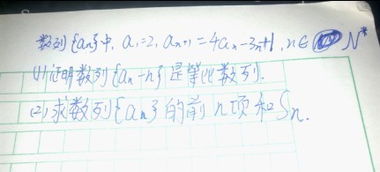 数列{aₙ}中, a₁=2, aₙ₊₁=4aₙ-3n+1, n∈N*
(1)证明数列{aₙ-n}是等比数列.
(2)求数列{aₙ}的前n项和Sₙ.